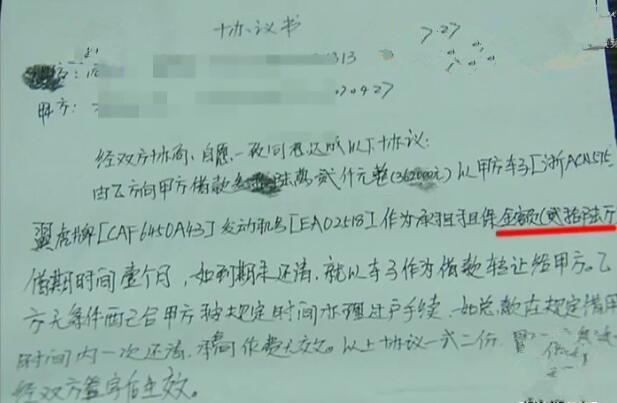 协议书
7.27
313
甲方:
70927
经双方协商、自愿、一致同意达成以下协议:
由乙方向甲方借款 陆萬贰仟元整(362000元)以甲方车子[浙ACN575
翼虎牌[CAF6450A43]发动机号[EA02518]作为承担担保金额(贰拾陆万
借期时间壹个月,如到期未还清,就以车子作为借款转让给甲方。乙
方无条件配合甲方按规定时间办理过户手续,如总款在规定借用
时间内一次还清,合同作费无效。以上协议一式二份,
经双方签字后生效。